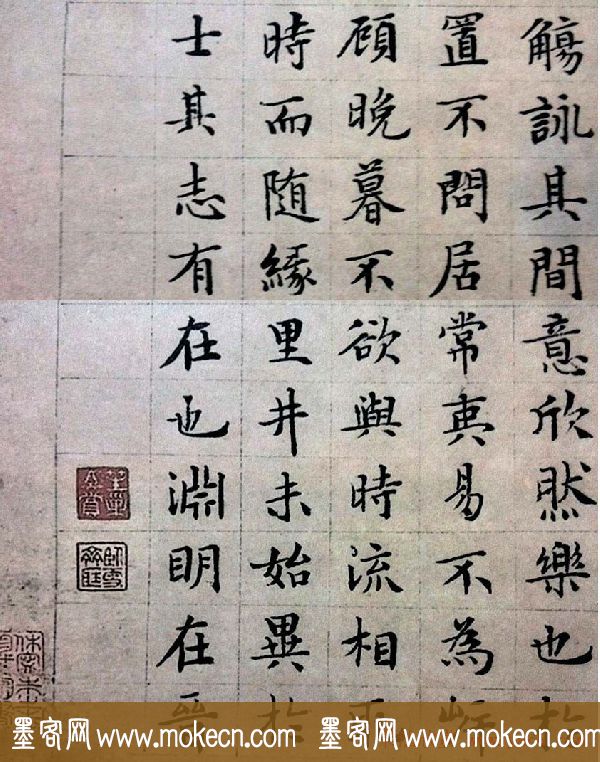 觴詠其間意欣然樂也於
置不問居常夷易不為
顧晚暮不欲與時流相
時而随緣里井未始異於
士其志有在也淵明在晉
墨客网 www.mokecn.com 墨客网 www.mokecn.com